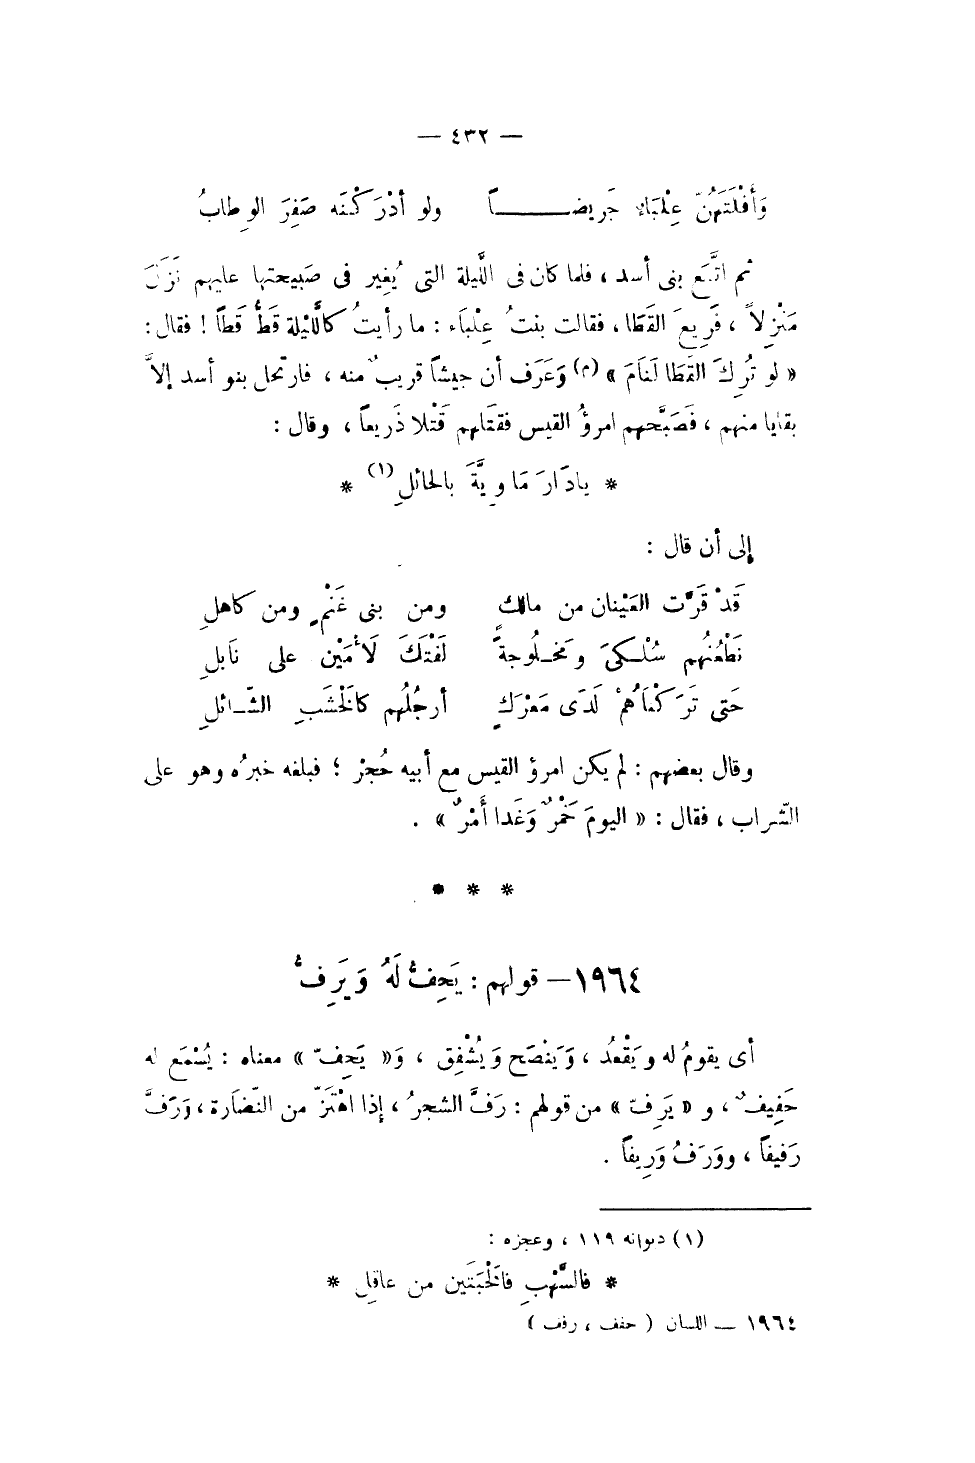 — ٤٣٢ —
وَأَفْلَتَهُنّ عِلْبَاء جَرِيضـــــــاً ولو أدْرَكْنَه صَفِرَ الوِطابُ
ثم اتَّبَع بنى أسد ، فلما كان فى اللَّيلة التى يُغِير فى صَبِيحتها عليهم نَزَلَ
مَنْزِلاً ، فَرِيعَ القَطَا ، فقالت بنتُ عِلْباَء : ما رأيتُ كاللَّيلة قَطُّ قَطاً ! فقال :
« لو تُرِكَ القَطَا لَنَامَ » (م) وَعَرَف أن جيشاً قريبٌ منه ، فارتحل بنو أسد إلاَّ
بقايا منهم ، فَصَبَّحهم امرؤُ القيس فقتَلهم قَتْلا ذَرِيعاً ، وقال :
* يادَارَ مَاوِيَّةَ بالحائلِ (١) *
إلى أن قال :
قَدْ قَرَّت العَيْنان من مالك ومن بنى غَنْمٍ ومن كاهلِ
نَطْعُنُهم سُلْـكىَ ومَخـلُوجةً لَفْتَكَ لَأمَيْن على نَابلِ
حَتى تَرَكْنَاهُمْ لَدَى مَعْرَكٍ أرجُلُهم كالَخْشَبِ الشّـائلِ
وقال بعضهم : لم يكن امرؤ القيس مع أبيه حُجرْ ؛ فبلغه خبرُه وهو على
الشّراب ، فقال : « اليومَ خَمْرٌ وَغَدا أَمْرٌ » .
* * *
١٩٦٤ — قولهم : يَحِفُّ لَهُ وَيَرِفُّ
أى يقومُ له ويَقْعُد ، وَيَنْصَح وَيُشْفِق ، وَ« يَحِفّ » معناه : يُسْمَع له
حَفِيفٌ ، و « يَرِفّ » من قولهم : رَفَّ الشجرُ ، إذا اهْتَزّ من النّضَارة ، وَرَفَّ
رَفيفاً ، ووَرَفُ وَرِيفاً .
(١) ديوانه ١١٩ ، وعجزه :
* فالسَّهْبِ فالَخْبَتَين من عاقِلِ *
١٩٦٤ — اللسان ( حفف ، رفف )